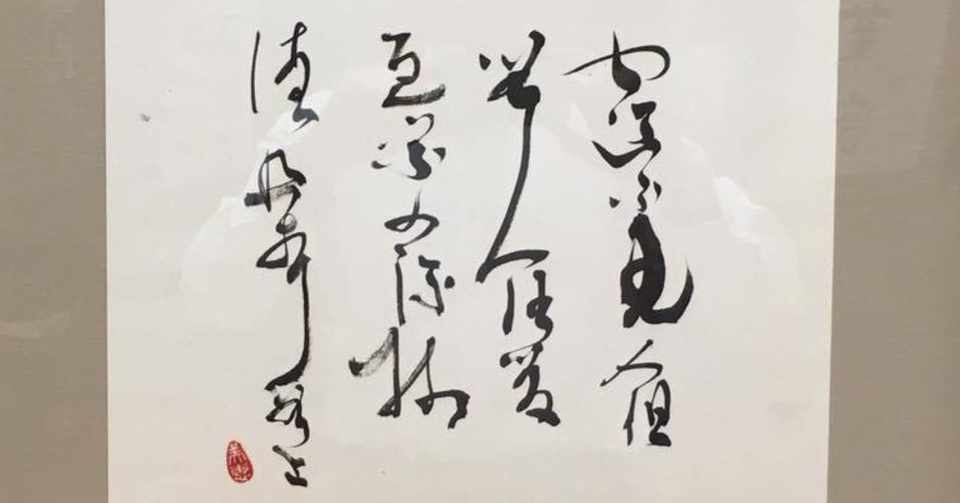 空山不見人但
聞人語響
返景入深林
復照青苔上